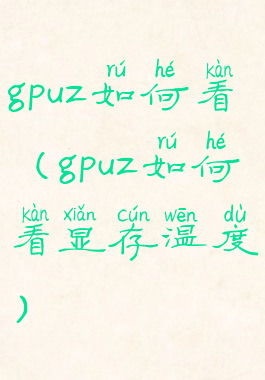 rú hé kàn
gpuz如何看
rú hé
（gpuz如何
kàn xiǎn cún wēn dù
看显存温度
）